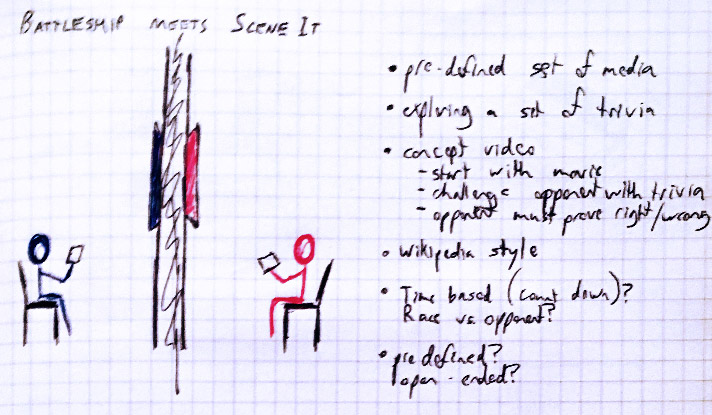 BATTLESHIP MEETS SCENE IT
• pre-defined set of media
• explving a set of trivia
• concept video
- start with movie
- challenge opponent with trivia
- opponent must prove right/wrong
• wikipedia style
• Time based (count down)?
Race vs opponent?
• pre defined?
open-ended?